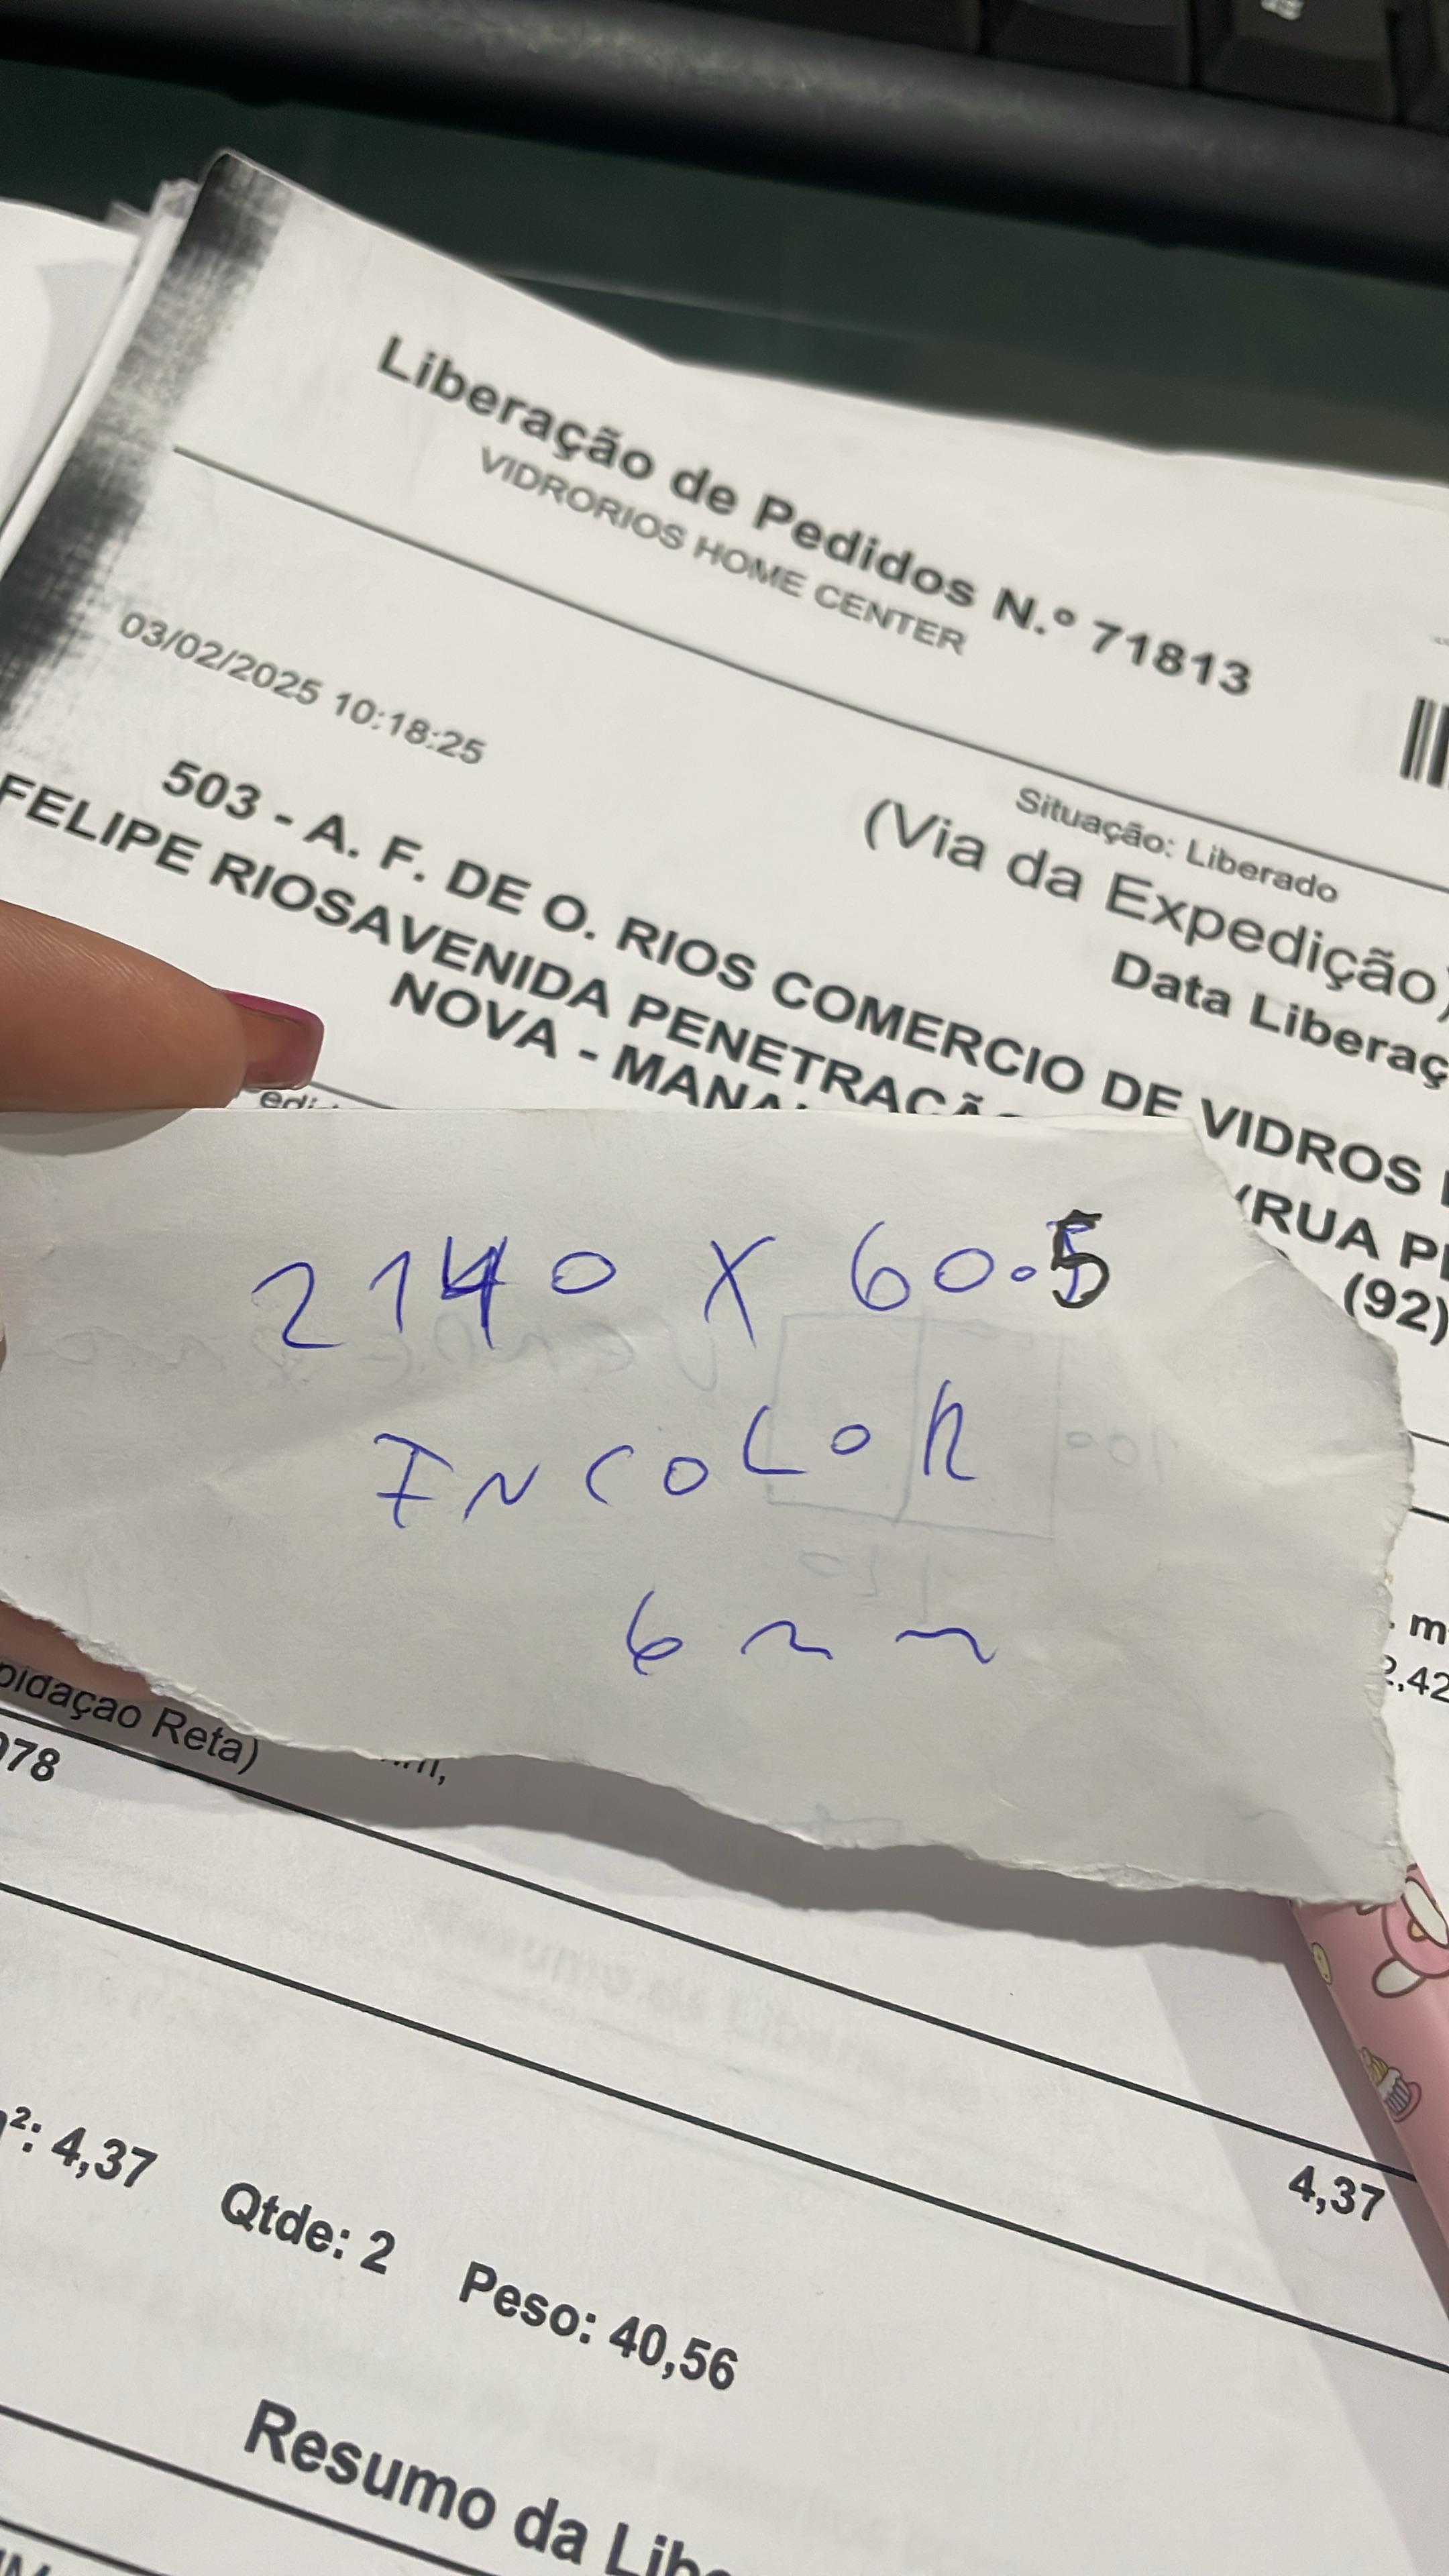 Liberação de Pedidos N.º 71813
VIDRORIOS HOME CENTER
03/02/2025 10:18:25
Situação: Liberado
(Via da Expedição)
503 - A. F. DE O. RIOS COMERCIO DE VIDROS
Data Liberaç
FELIPE RIOSAVENIDA PENETRAÇÃ
(RUA
NOVA - MANA
(92)
2140 X 60.5
INCOLOR
6mm
2,42
Reta)
4,37
4,37 Qtde: 2 Peso: 40,56
Resumo da Libe